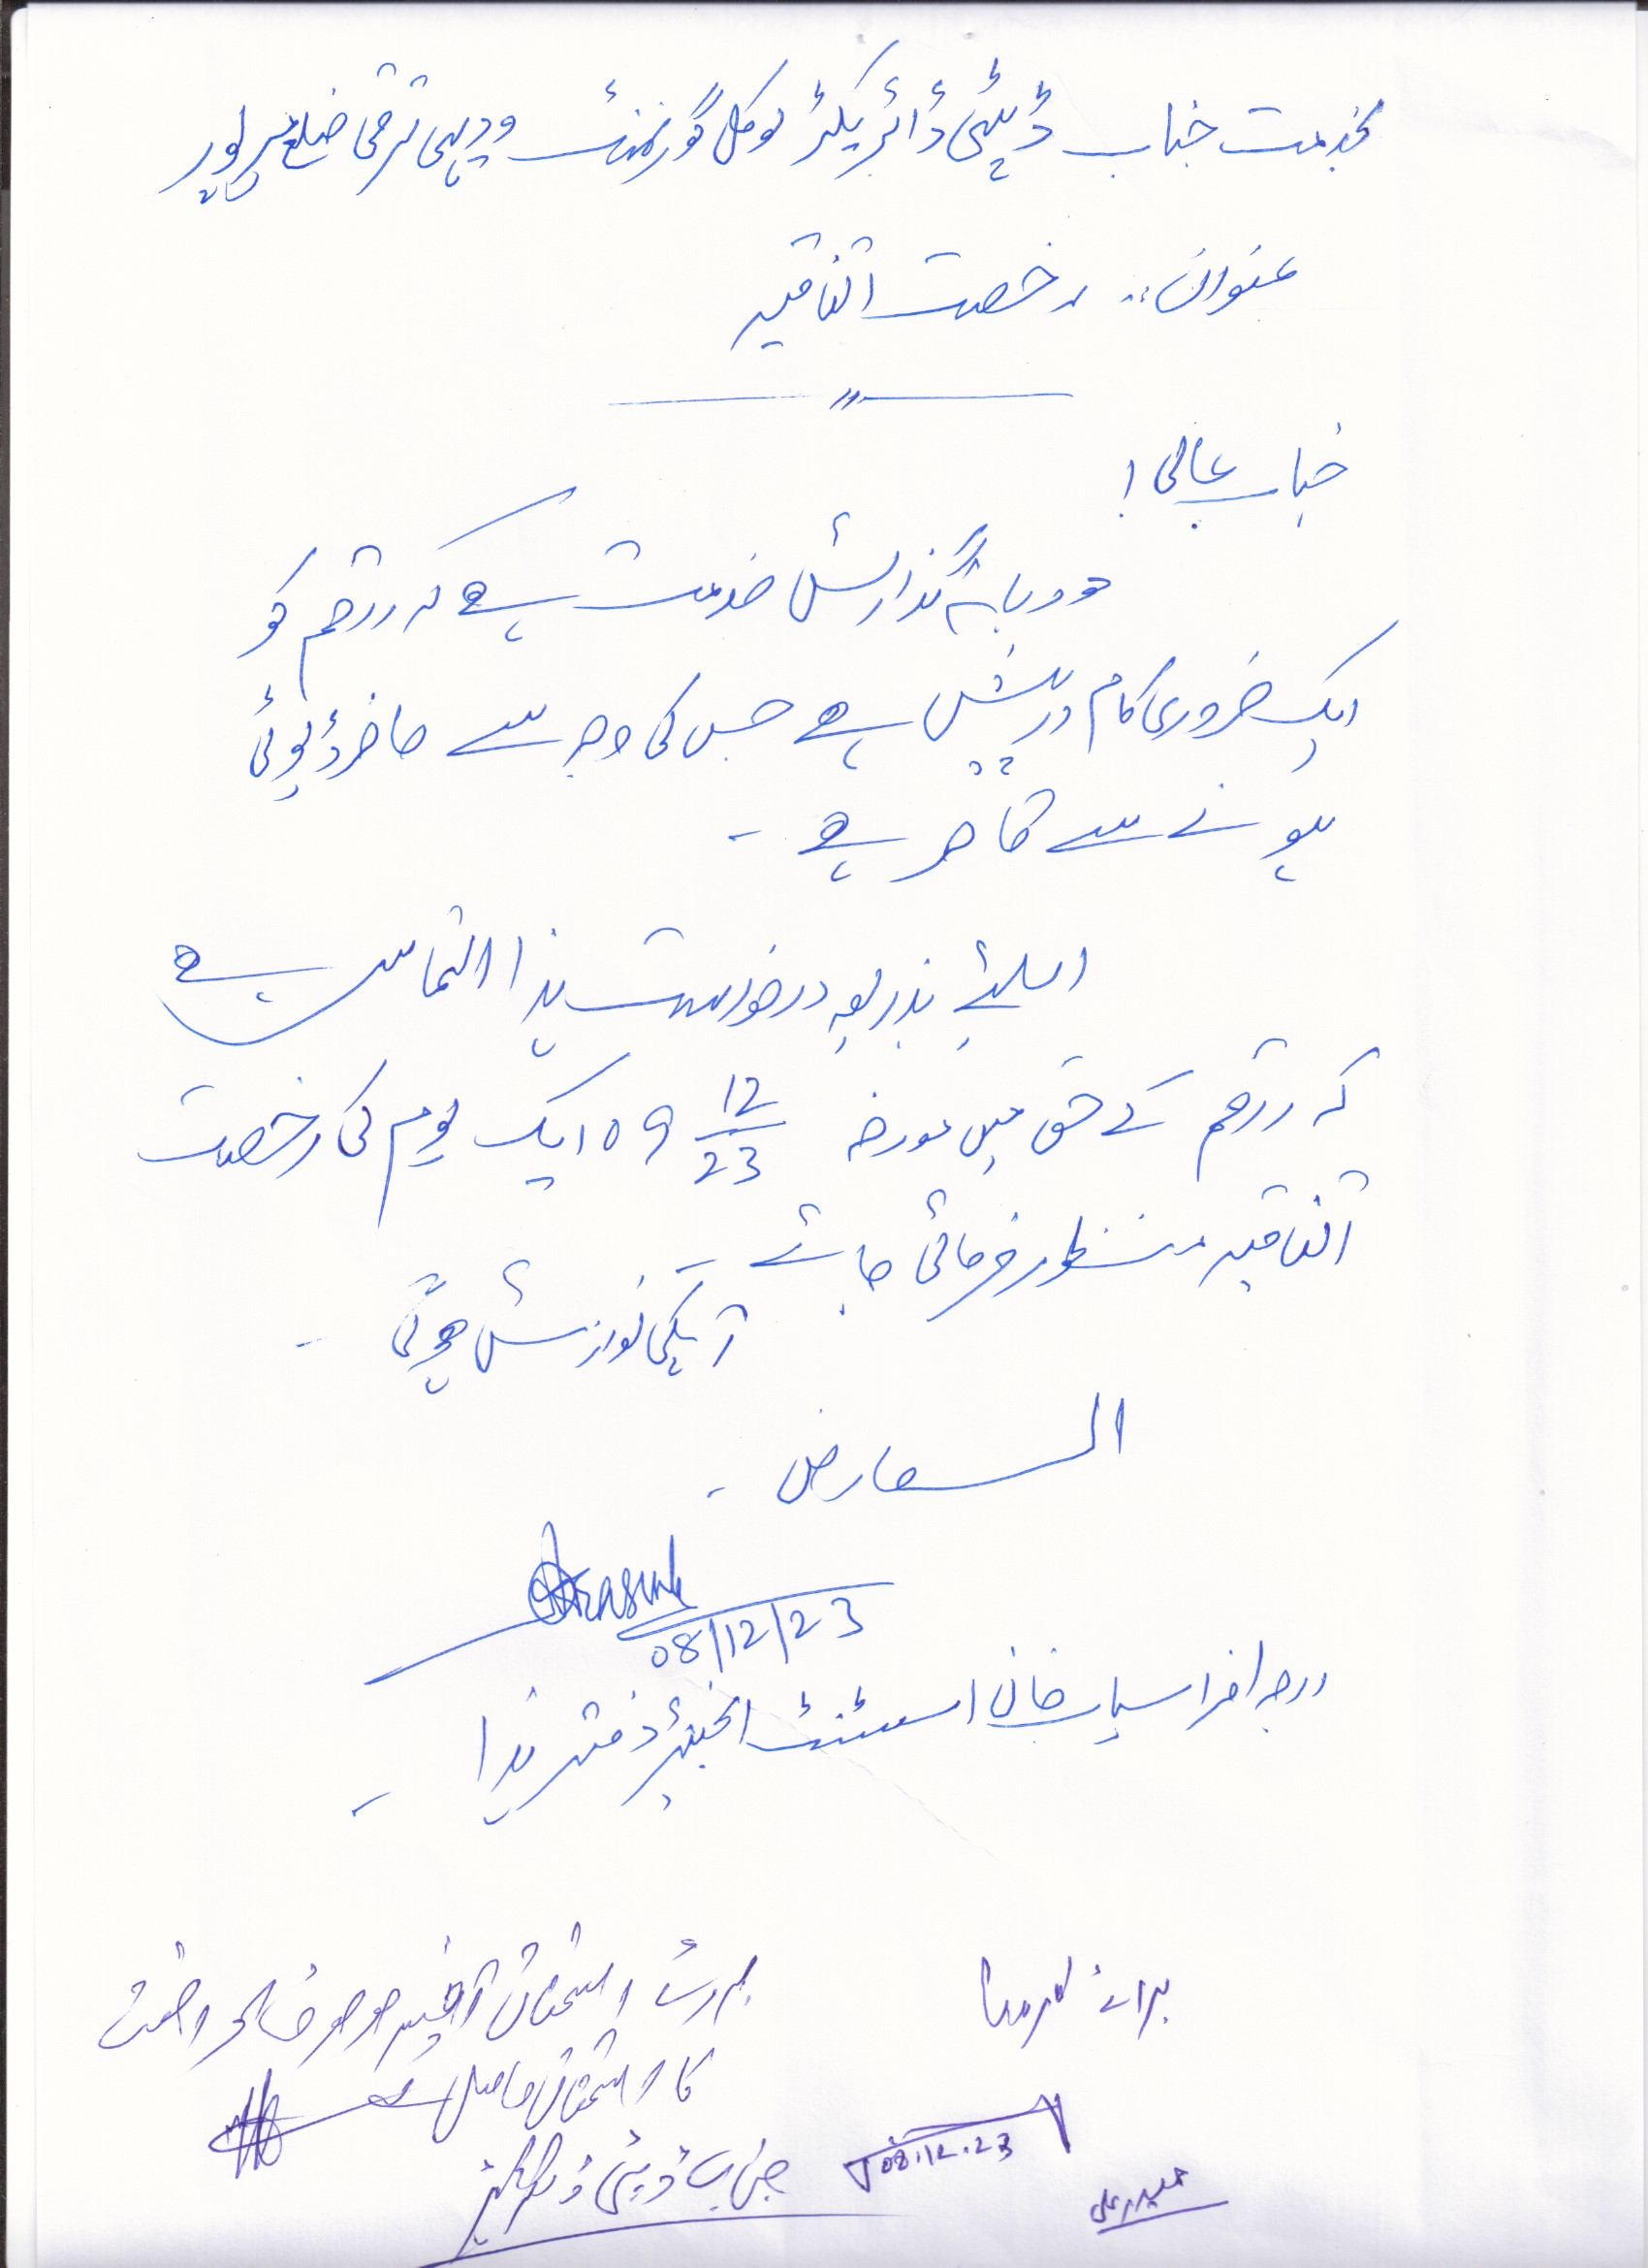 بخدمت جناب ڈپٹی ڈائریکٹر لوکل گورنمنٹ و دیہی ترقی ضلع میرپور
عنوان :۔ رخصت اتفاقیہ
جناب عالی !
مودبانہ گذارش خدمت ہے کہ راقم کو
ایک ضروری کام درپیش ہے جس کی وجہ سے حاضر ڈیوٹی
ہونے سے قاصر ہے ۔
اسلیئے بذریعہ درخواست ہذا التماس ہے
کہ راقم کے حق میں مورخہ 09 12/23 ایک یوم کی رخصت
اتفاقیہ منظور فرمائی جائے ۔
آپکی نوازش ہوگی ۔
العارض ۔
08/12/23
راجہ افراسیاب خان اسسٹنٹ انجینئر دفتر ہذا ۔
برائے
رپورٹ استحقاق آفیسر موصوف رخصت
کا استحقاق حاصل ہے
08.12.23
جناب ڈپٹی ڈائریکٹر